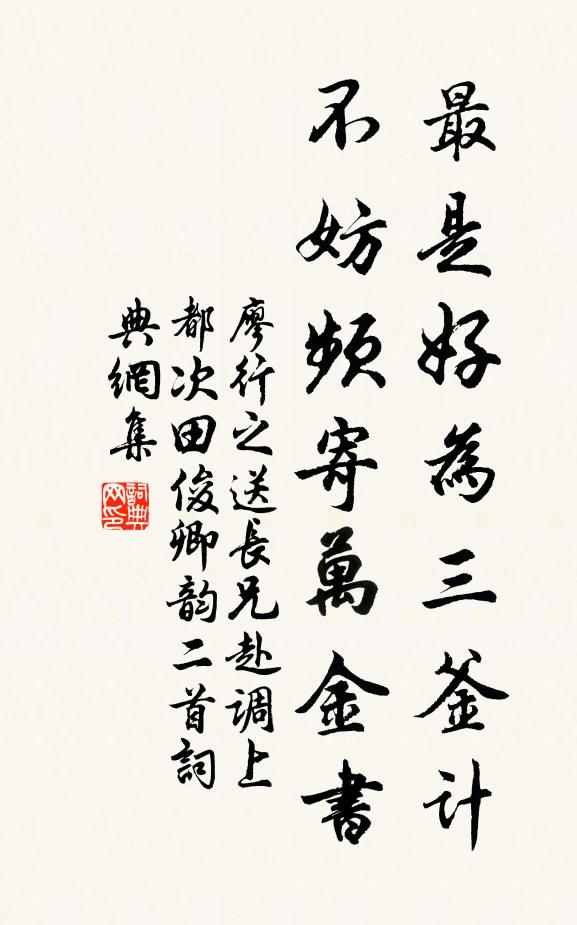 最是好為三釜计
不妨頻寄萬金書
廖行之送長兄赴调上
都次田俊卿韵二首詞
典網集
詞典网印